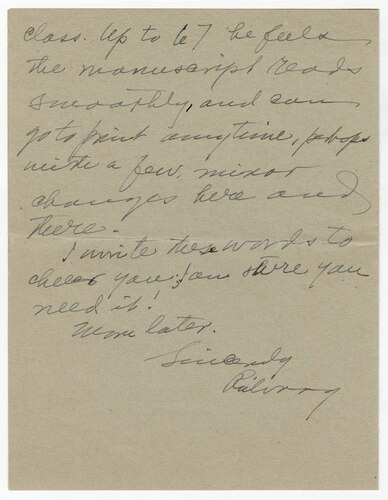 class. Up to 67 he feels
the manuscript reads
smoothly, and can
go to print anytime, perhaps
with a few, minor
changes here and
there.
I write these words to
cheer you; I am sure you
need it!
More later.
Sincerely